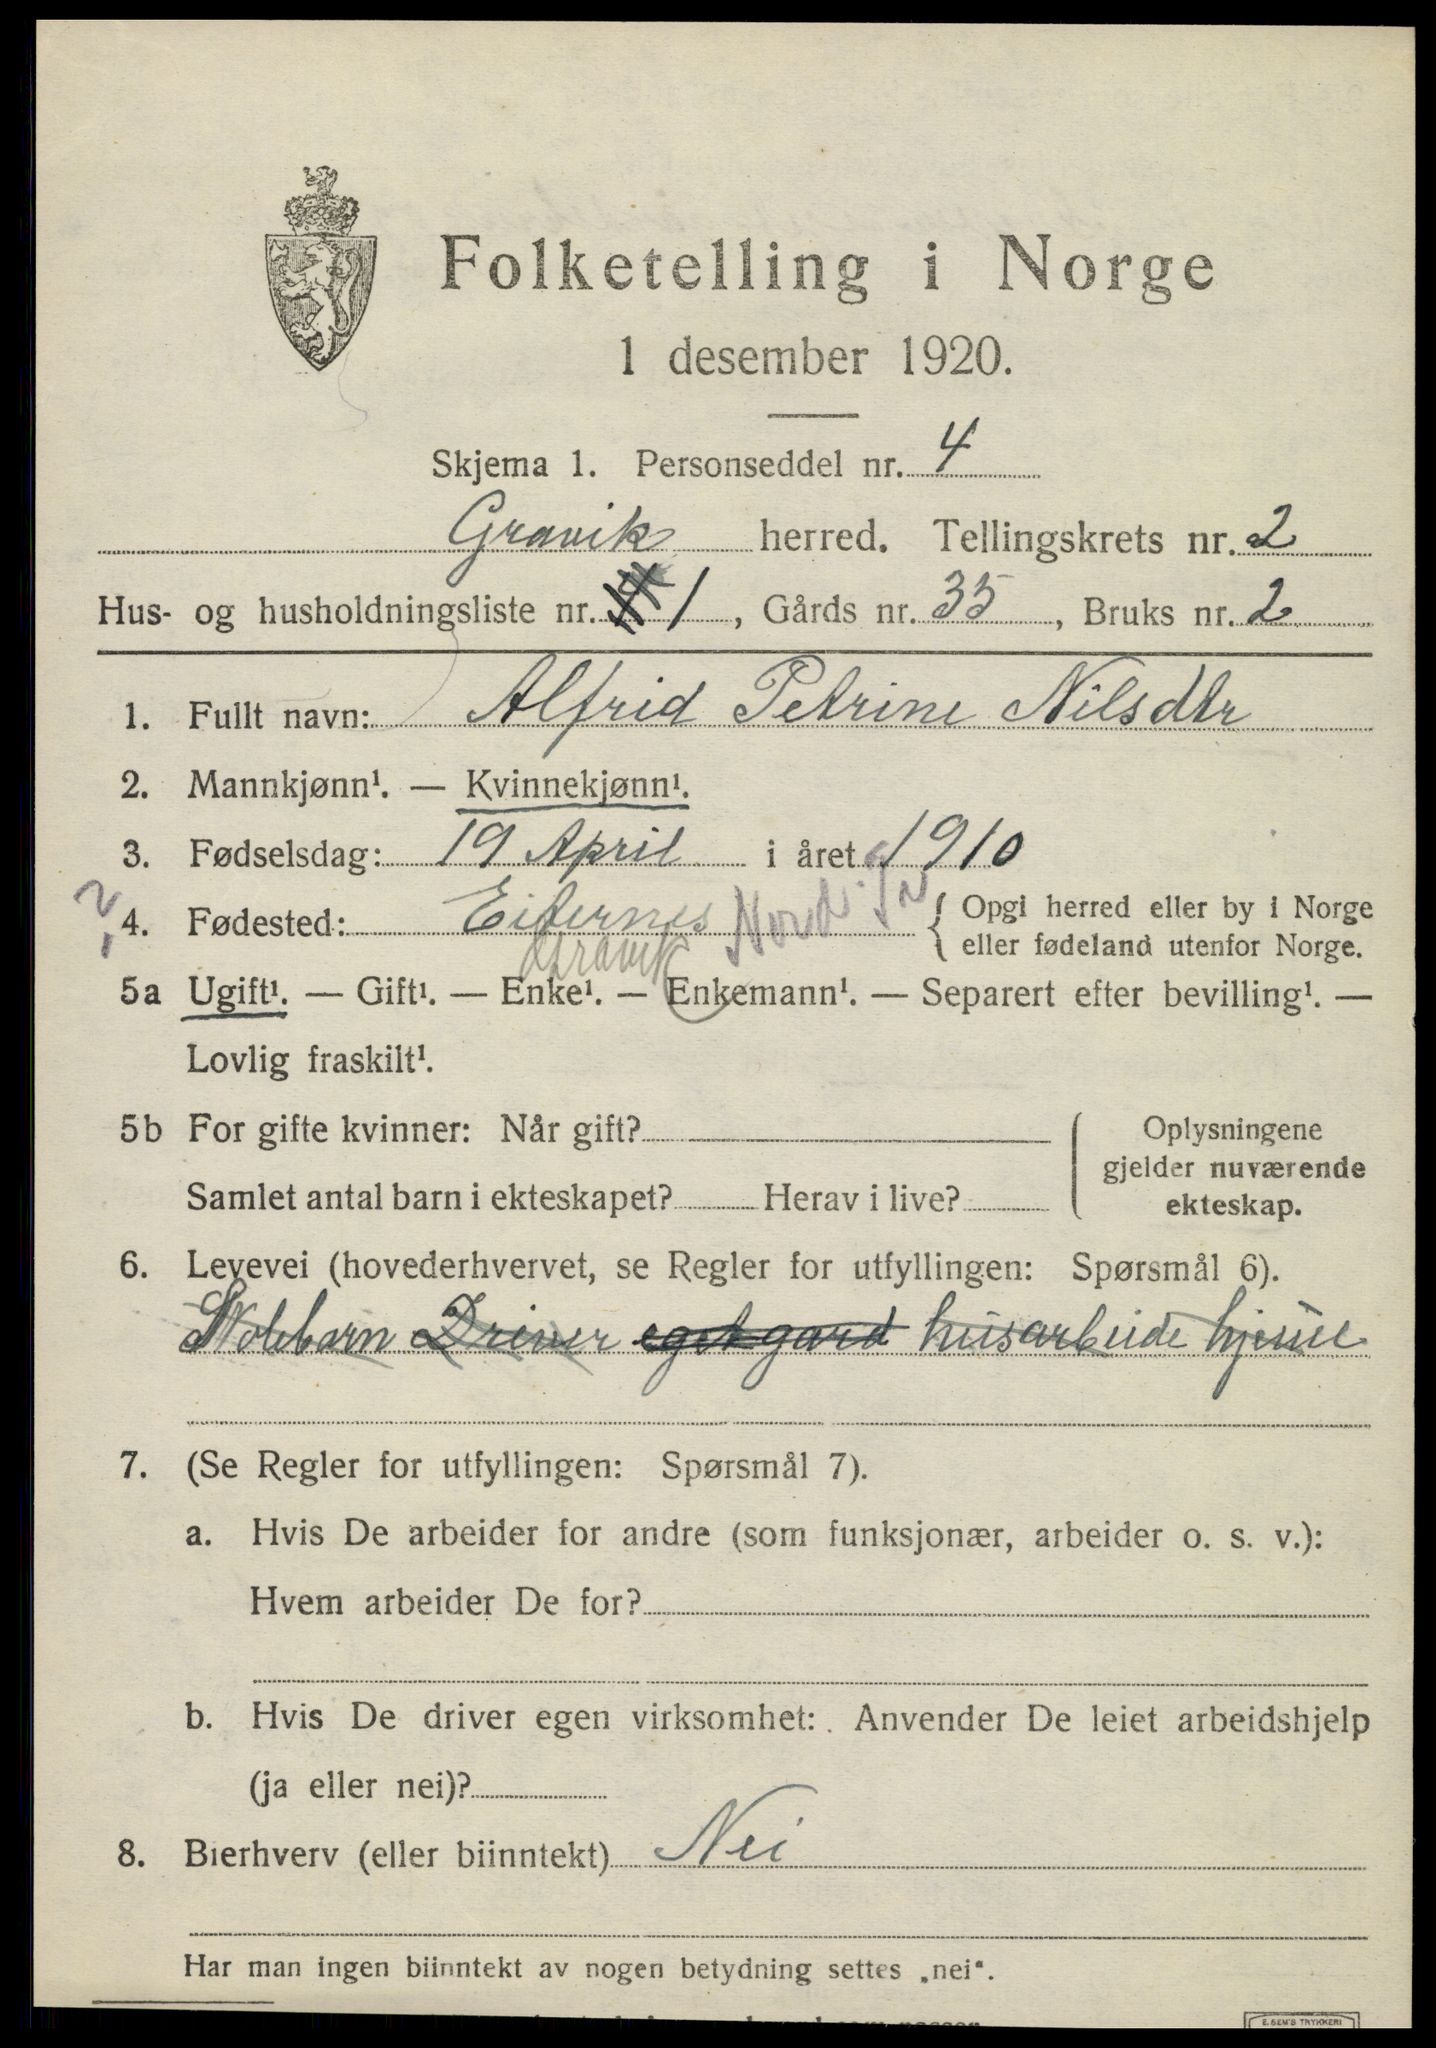 Folketelling i Norge
1 desember 1920.
Skjema 1. Personseddel nr. 4
Gravik herred. Tellingskrets nr. 2
Hus- og husholdningsliste nr. 1, Gårds nr. 35, Bruks nr. 2
1. Fullt navn: Alfrid Petrine Nilsdtr
2. Mannkjønn¹. — Kvinnekjønn¹.
3. Fødselsdag: 19 April i året 1910
4. Fødested: Eiternes { Opgi herred eller by i Norge
eller fødeland utenfor Norge.
Gravik
5a Ugift¹. — Gift¹. — Enke¹. — Enkemann¹. — Separert efter bevilling¹. —
Lovlig fraskilt¹.
5b For gifte kvinner: Når gift? { Oplysningene
gjelder nuværende
Samlet antal barn i ekteskapet? Herav i live? ekteskap.
6. Levevei (hovederhvervet, se Regler for utfyllingen: Spørsmål 6).
Driver eget gard husarbeide hjeme
7. (Se Regler for utfyllingen: Spørsmål 7).
a. Hvis De arbeider for andre (som funksjonær, arbeider o. s. v.):
Hvem arbeider De for?
b. Hvis De driver egen virksomhet: Anvender De leiet arbeidshjelp
(ja eller nei)?
8. Bierhverv (eller biinntekt) Nei
Har man ingen biinntekt av nogen betydning settes „nei“.
E. SEM'S TRYKKERI